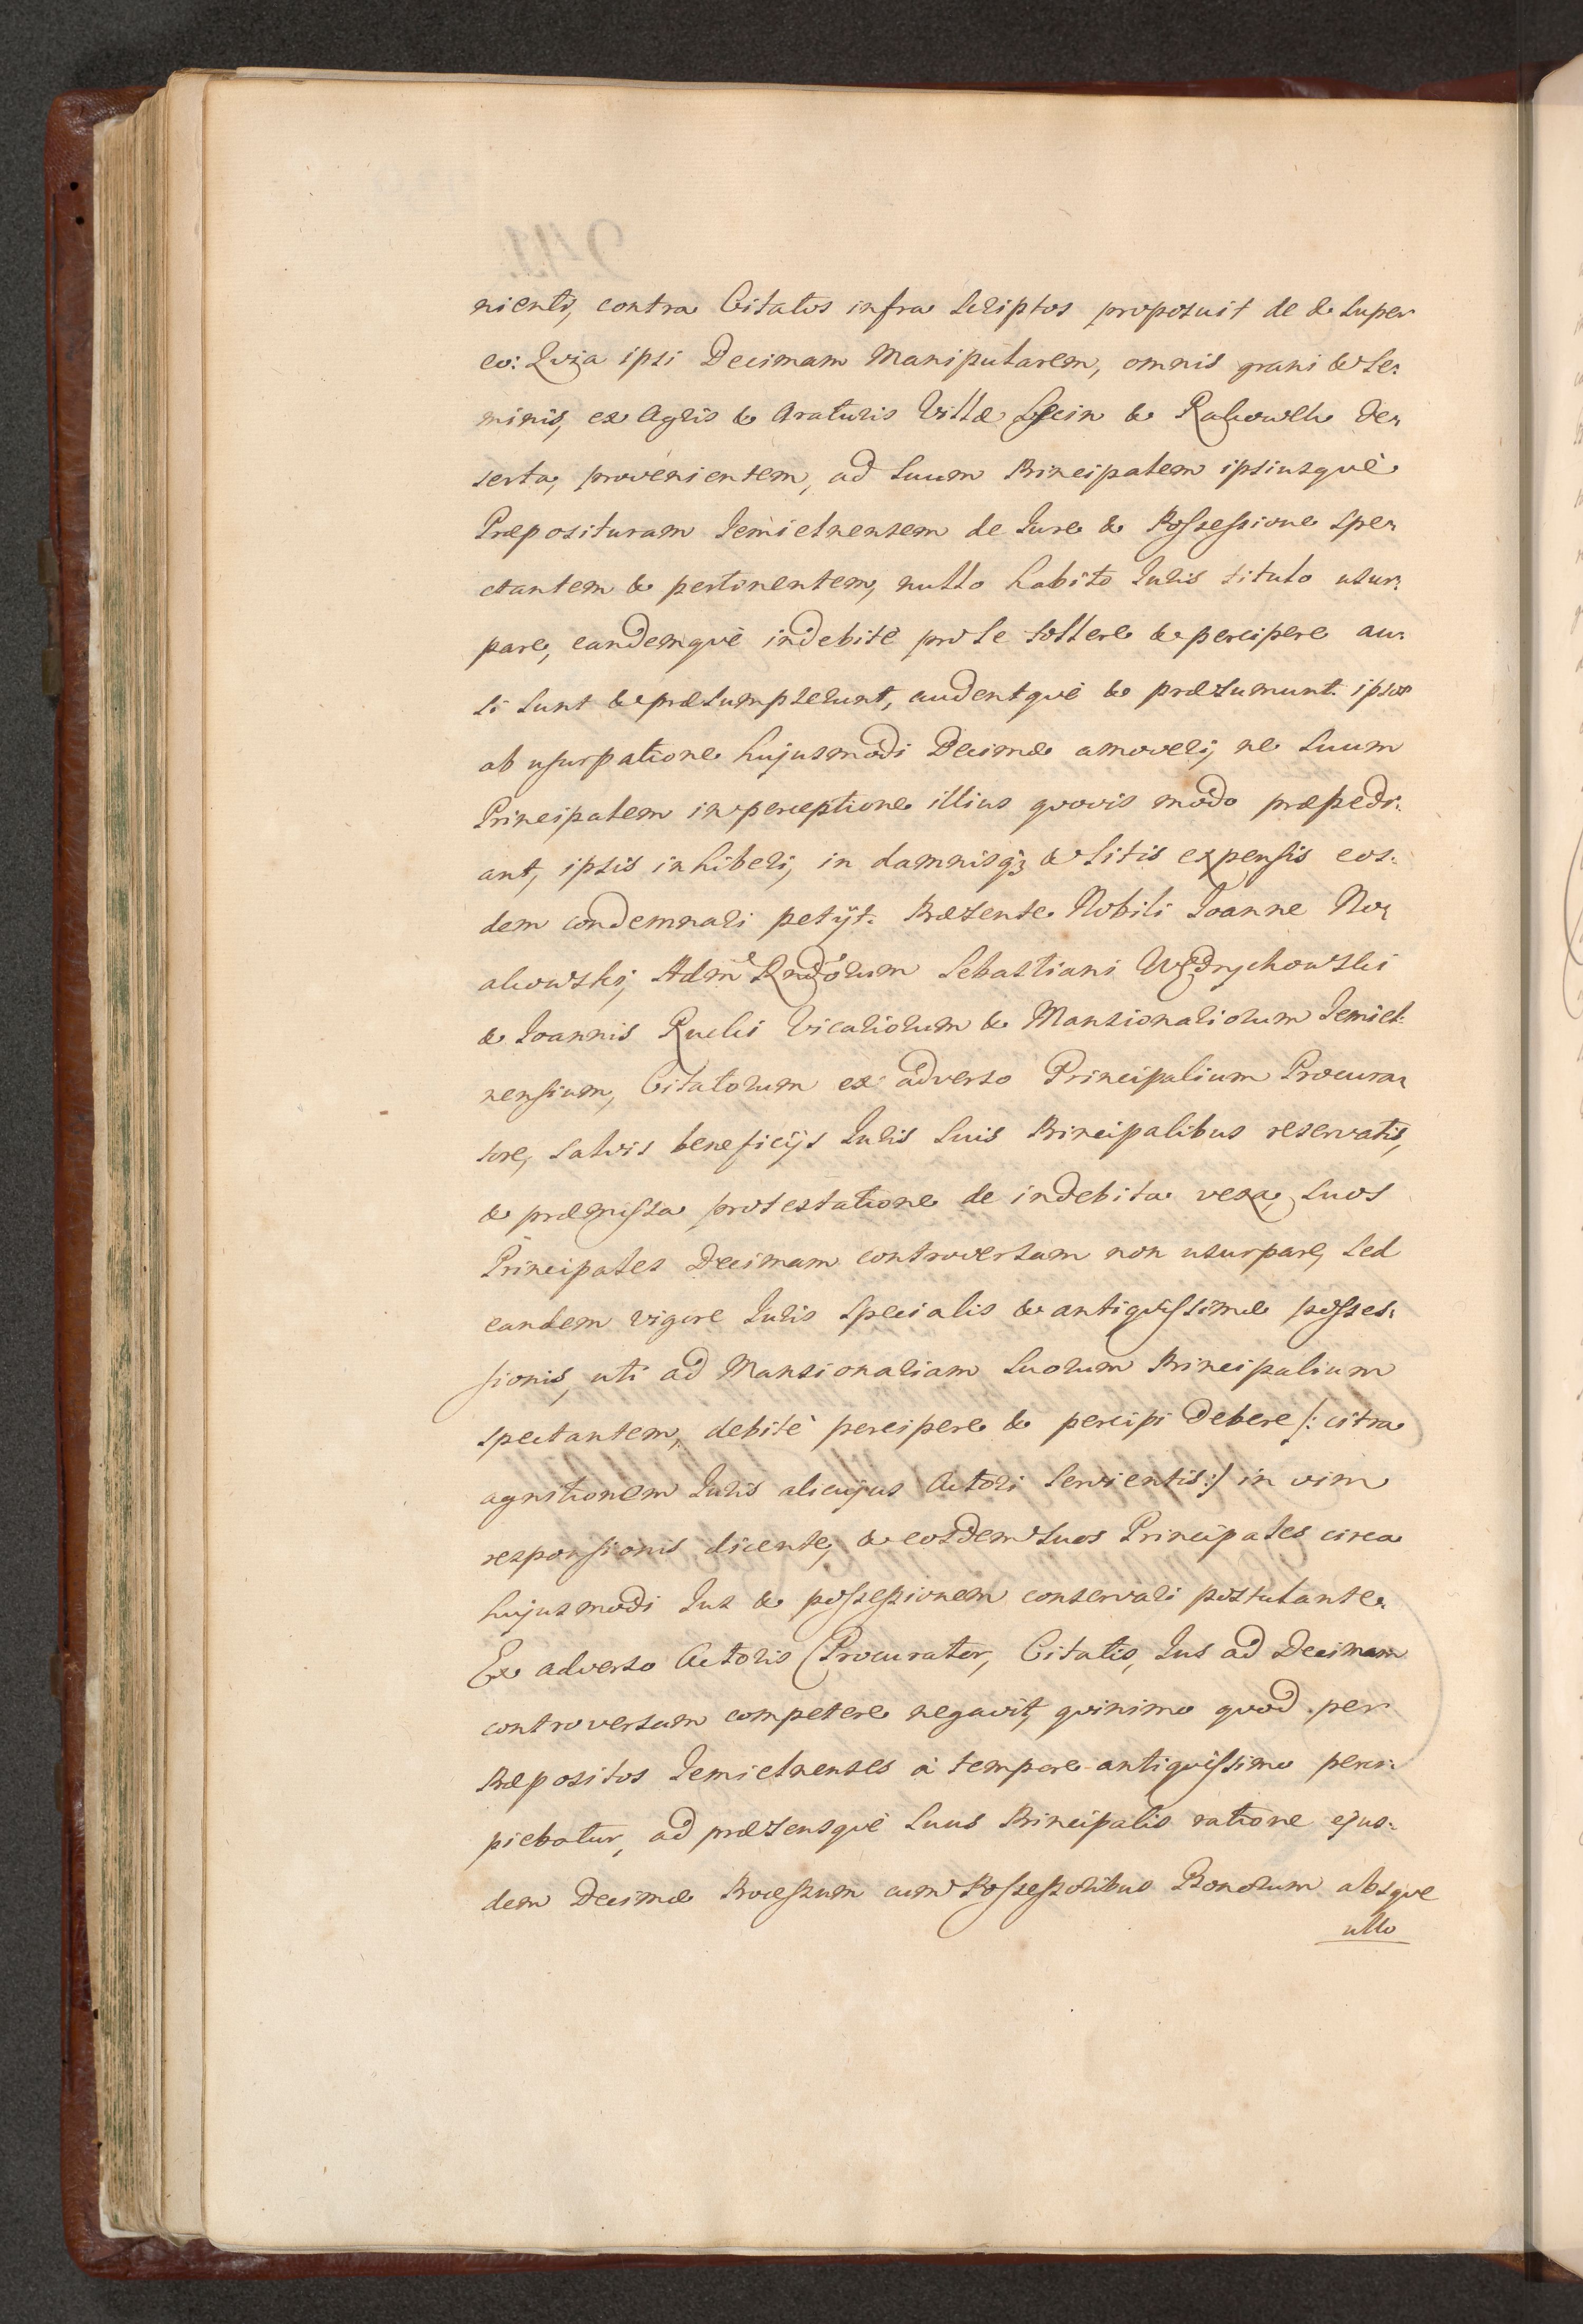 nienti, contra Citatos infra Scriptos proposuit de & Super
eo: Quia ipsi Decimam Manipularem, omnis grani & Se:
minis, ex Agris & Araturis Villæ & Rakowek de:
serta, provenientem, ad Suum Principalem ipsiusquè
Præposituram Jemielnensem de Jure & Possessione spe:
ctantem & pertinentem, nullo habito Juris titulo usur:
pare, eandemquè indebitè pro Se tollere & percipere au:
si sunt & præsumpserunt, audentquè & præsumunt: ipsos
ab usurpatione hujusmodi Decimæ amoveri, ne Suum
Principalem in perceptione illius quovis modo præpedi:
ant, ipsis inhiberi, in damnisq3 & Litis expensis eos:
dem condemnari petijt. Præsente Nobili Joanne No:
akowski, Adm Rndorum Sebastiani Wędrychowski
& Joannis Rucki Vicariorum & Mansionariorum Jemiel:
nensium, Citatorum ex adverso Principalium Procura:
tore, salvis beneficijs Juris Suis Principalibus reservatis,
& præmissa protestatione de indebita vexa, Suos
Principales Decimam controversam non usurpare, sed
eandem vigore Juris Specialis & antiquissimæ posses:
sionis, uti ad Mansionariam Suorum Principalium
spectantem, debitè percipere & percipi debere /: citra
agnitionem Juris alicujus Actori Servientis :/ in vim
responsionis dicente, & eosdem Suos Principales circa
hujusmodi Jus & possessionem conservari postulante.
Ex adverso Actoris Procurator, Citatis, Jus ad Decimam
controversam competere negavit, quinimo quod per
Præpositos Jemielnenses à tempore antiquissimo perci:
piebatur, ad præsensquè Suus Principalis ratione ejus:
dem Decimæ Processum cum Possessoribus Bonorum absque
ullo